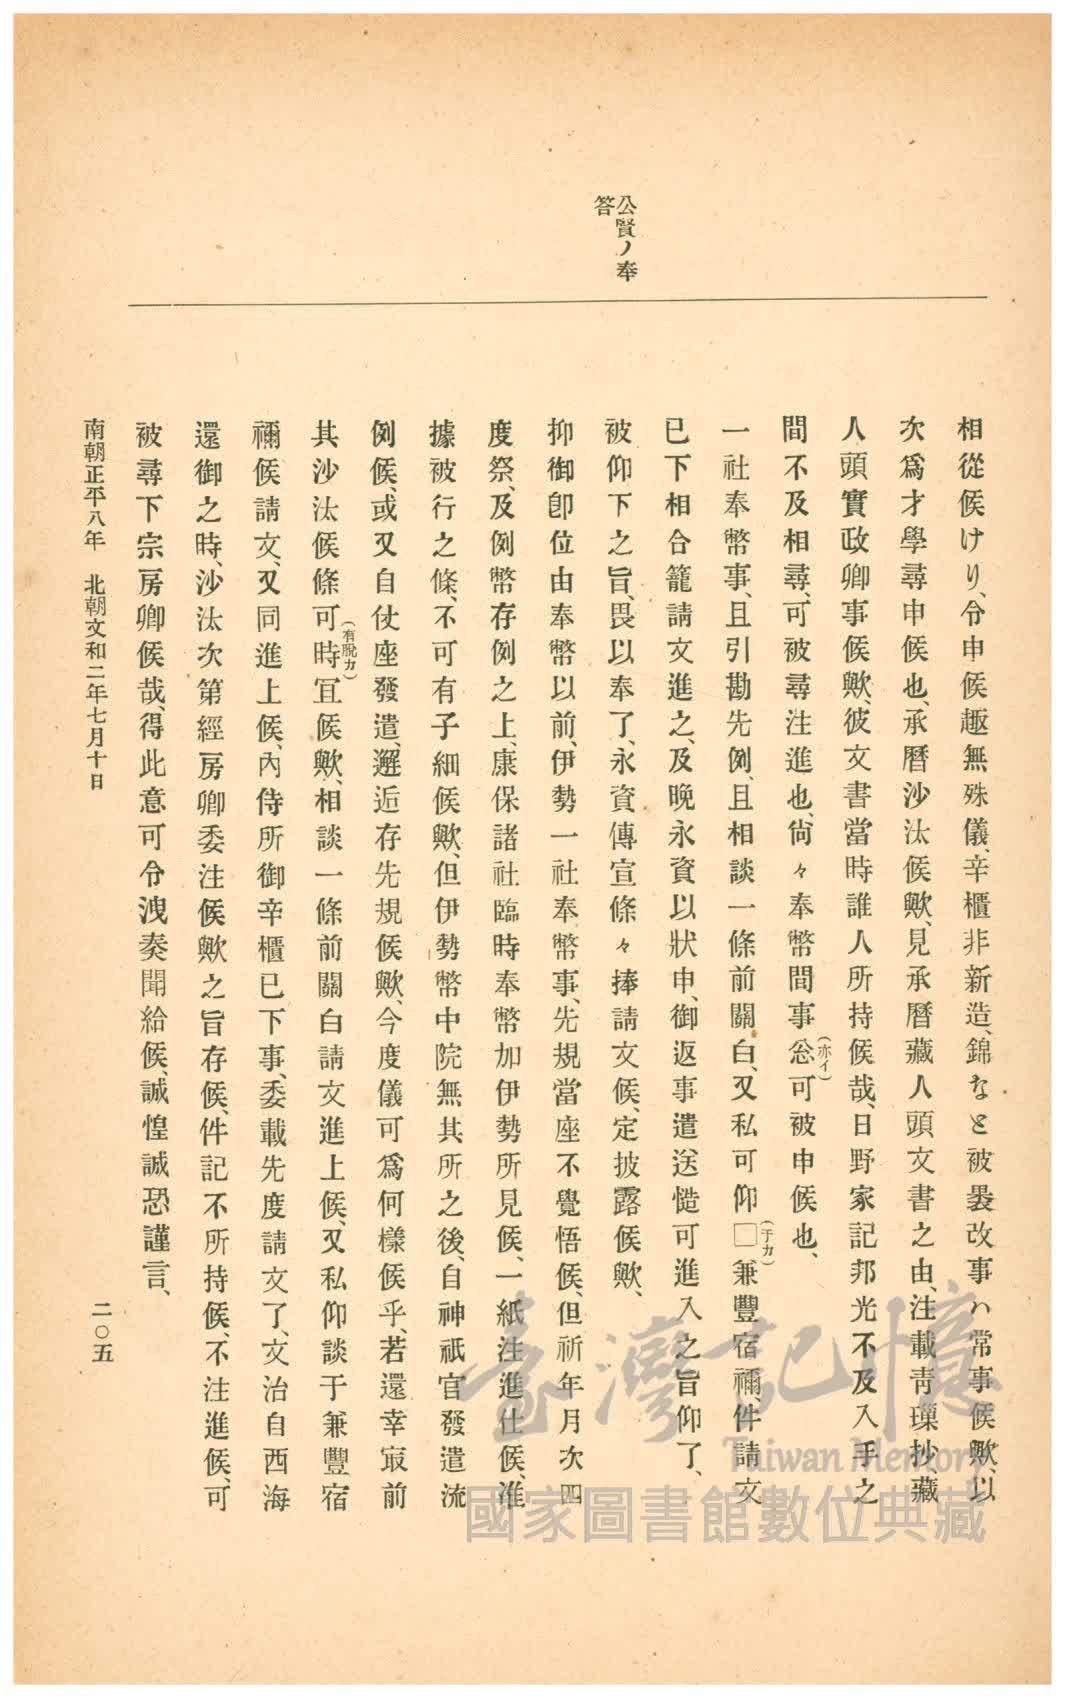 公賢ノ奉
答
相從候けり、令申候趣無殊儀、辛櫃非新造、錦なと被裹改事ハ常事候歟、以
次爲才學尋申候也、承曆沙汰候歟、見承曆藏人頭文書之由、注載靑璅抄、藏
人頭實政卿事候歟、彼文書當時誰人所持候哉、日野家記邦光不及入手之
間不及相尋、可被尋注進也、尙々奉幣間事忩(亦イ)可被申候也、
一社奉幣事、且引勘先例、且相談一條前關白、又私可仰□(于カ)兼豐宿禰、件請文
已下相合籠請文進之、及晚永資以狀申、御返事遣送慥可進入之旨仰了、
被仰下之旨、畏以奉了、永資傳宣條々捧請文候、定披露候歟、
抑御卽位由奉幣以前、伊勢一社奉幣事、先規當座不覺悟候、但祈年月次四
度祭、及例幣存例之上、康保諸社臨時奉幣加伊勢所見候、一紙注進仕候、准
據被行之條、不可有子細候歟、但伊勢幣中院無其所之後、自神祇官發遣流
例候、或又自仗座發遣、邂逅存先規候歟、今度儀可爲何樣候乎、若還幸㝡前
其沙汰候條可時(有脫カ)冝候歟、相談一條前關白請文進上候、又私仰談于兼豐宿
禰候請文、又同進上候、內侍所御辛櫃已下事、委載先度請文了、文治自西海
還御之時、沙汰次第經房卿委注候歟之旨存候、件記不所持候、不注進候、可
被尋下宗房卿候哉、得此意可令洩奏聞給候、誠惶誠恐謹言、
南朝正平八年　北朝文和二年七月十日
二〇五
臺灣記憶
Taiwan Memory
國家圖書館數位典藏